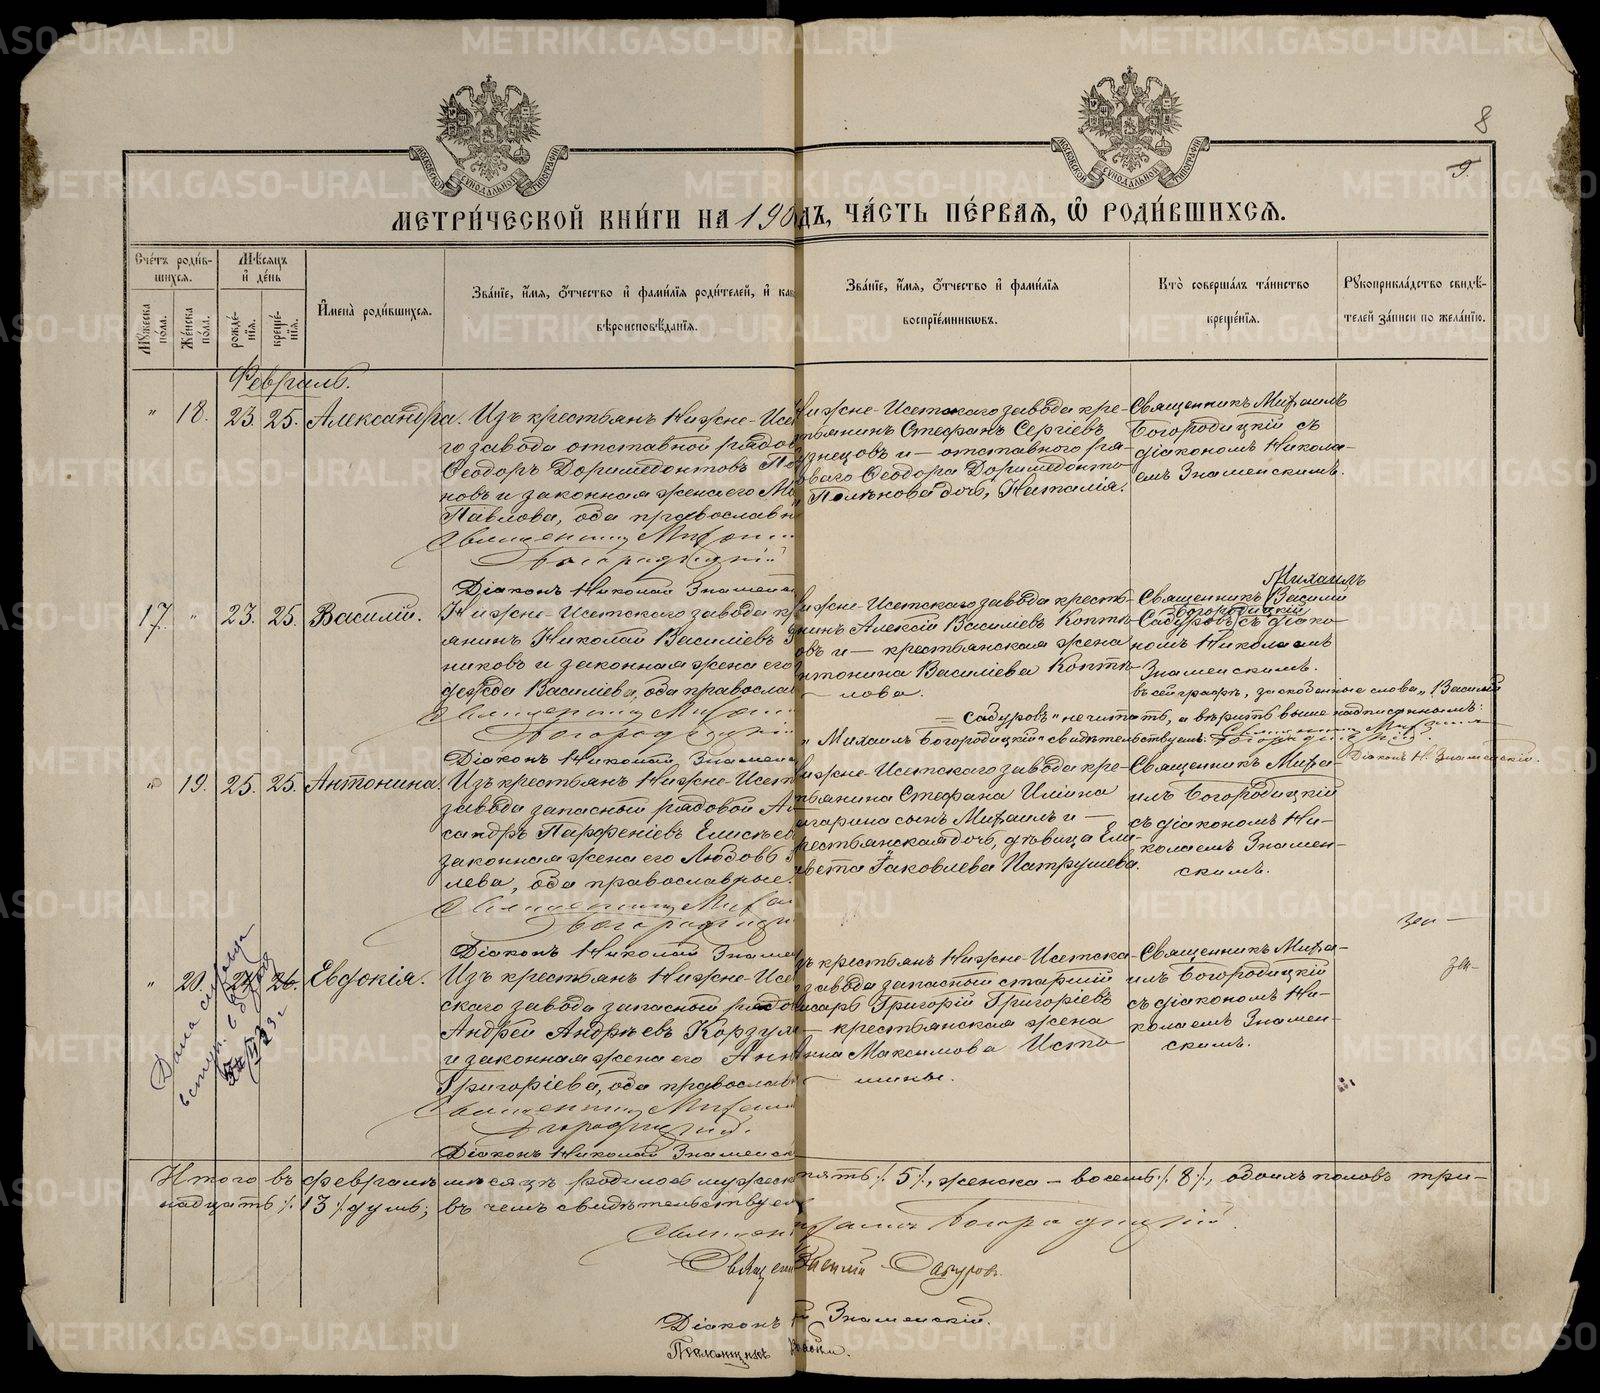 8
9.
МЕТРИ́ЧЕСКОЙ КНИ́ГИ НА 190 ДЪ, ЧА́СТЬ ПЕ́РВАЯ, Ѿ РОДИ́ВШИХСЯ.
Сче́тъ роди́вшихся.
Му́жеска по́ла.
Же́нска по́ла.
Мѣ́сяцъ и҆ де́нь
рожде́нїя.
креще́нїя.
И҆мена̀ роди́вшихся.
Зва́нїе, и҆́мя, ѻ҆́тчество и҆ фами́лїя роди́телей, и҆ как
вѣроисповѣ́данїя.
Зва́нїе, и҆́мя, ѻ҆́тчество и҆ фами́лїя
воспрїе́мниковъ.
Кто̀ соверша́лъ та́инство
креще́нїя.
Рꙋкоприкла́дство свидѣ́-
телей за́писи по жела́нїю.
Февраль.
" 18. 23. 25. Александра.
Изъ крестьянъ Нижне-Исет
го завода отставной рядов
Ѳеодоръ Доримедонтовъ Пол
новъ и законная жена его Ма
Павлова, оба православн
Священникъ Михаил
Богородицкій
Діаконъ Николай Знаменск
Нижне-Исетскаго завода кре-
тьянинъ Стефанъ Сергіевъ
знецовъ и — отставного ря-
оваго Ѳеодора Доримедонто-
Поленова дочь, Наталія.
Священникъ Михаилъ
Богородицкій съ
діакономъ Никола-
емъ Знаменскимъ.
17. " 23. 25. Василій.
Нижне-Исетскаго завода кр
янинъ Николай Василіевъ
никовъ и законная жена его
дежда Василіева, оба православ
Священникъ Михаил
Богородицкій
Діаконъ Николай Знаменск
ижне-Исетскаго завода кресть-
нинъ Алексій Василіевъ Копты-
овъ и — крестьянская жена
нтонина Василіева Копты-
лова.
Михаилъ
Священникъ Василій
Богородицкій
Сабуровъ съ діако-
номъ Николаемъ
Знаменскимъ.
въ сей графѣ, заскобенные слова „Василій
Сабуровъ" не читать, а вѣрить выше надписаннымъ:
„Михаилъ Богородицкій" свидѣтельствуемъ:
Діаконъ Н. Знаменскій.
" 19. 25. 25. Антонина.
Изъ крестьянъ Нижне-Исет
завода запасный рядовой Ал
сандръ Парфеніевъ Елисѣев
законная жена его Любовь
лева, оба православные.
Священникъ Михаил
Богородицк
Діаконъ Николай Знамен
ижне-Исетскаго завода кре-
тьянина Стефана Иліина
гарина сынъ Михаилъ и —
рестьянская дочь, дѣвица Ели-
авета Іаковлева Патрушева.
Священникъ Миха-
илъ Богородицкій
съ діакономъ Ни-
колаемъ Знамен-
скимъ.
" 20. 24. 26. Евдокія.
Изъ крестьянъ Нижне-Исет
скаго завода запасный рядо
Андрей Андреевъ Корзун
и законная жена его Анн
Григоріева, оба православн
Священникъ Михаил
Богородицкій.
Діаконъ Николай Знаменск
ъ крестьянъ Нижне-Исетска-
завода запасный старшій
исарь Григорій Григоріевъ
— крестьянская жена
Анна Максимова Исто-
мины.
Священникъ Миха-
илъ Богородицкій
съ діакономъ Ни-
колаемъ Знамен-
скимъ.
Дана справка
Итого въ февралѣ мѣсяцѣ родилось мужеск пять /. 5 /., женска — восемь /. 8 /., обоихъ половъ три-
надцать /. 13 /. душъ; въ чемъ свидѣтельствуе
Священ Михаилъ Богородицкій.
Священ Василій Сабуровъ.
Діаконъ Знаменскій.
Псаломщикъ